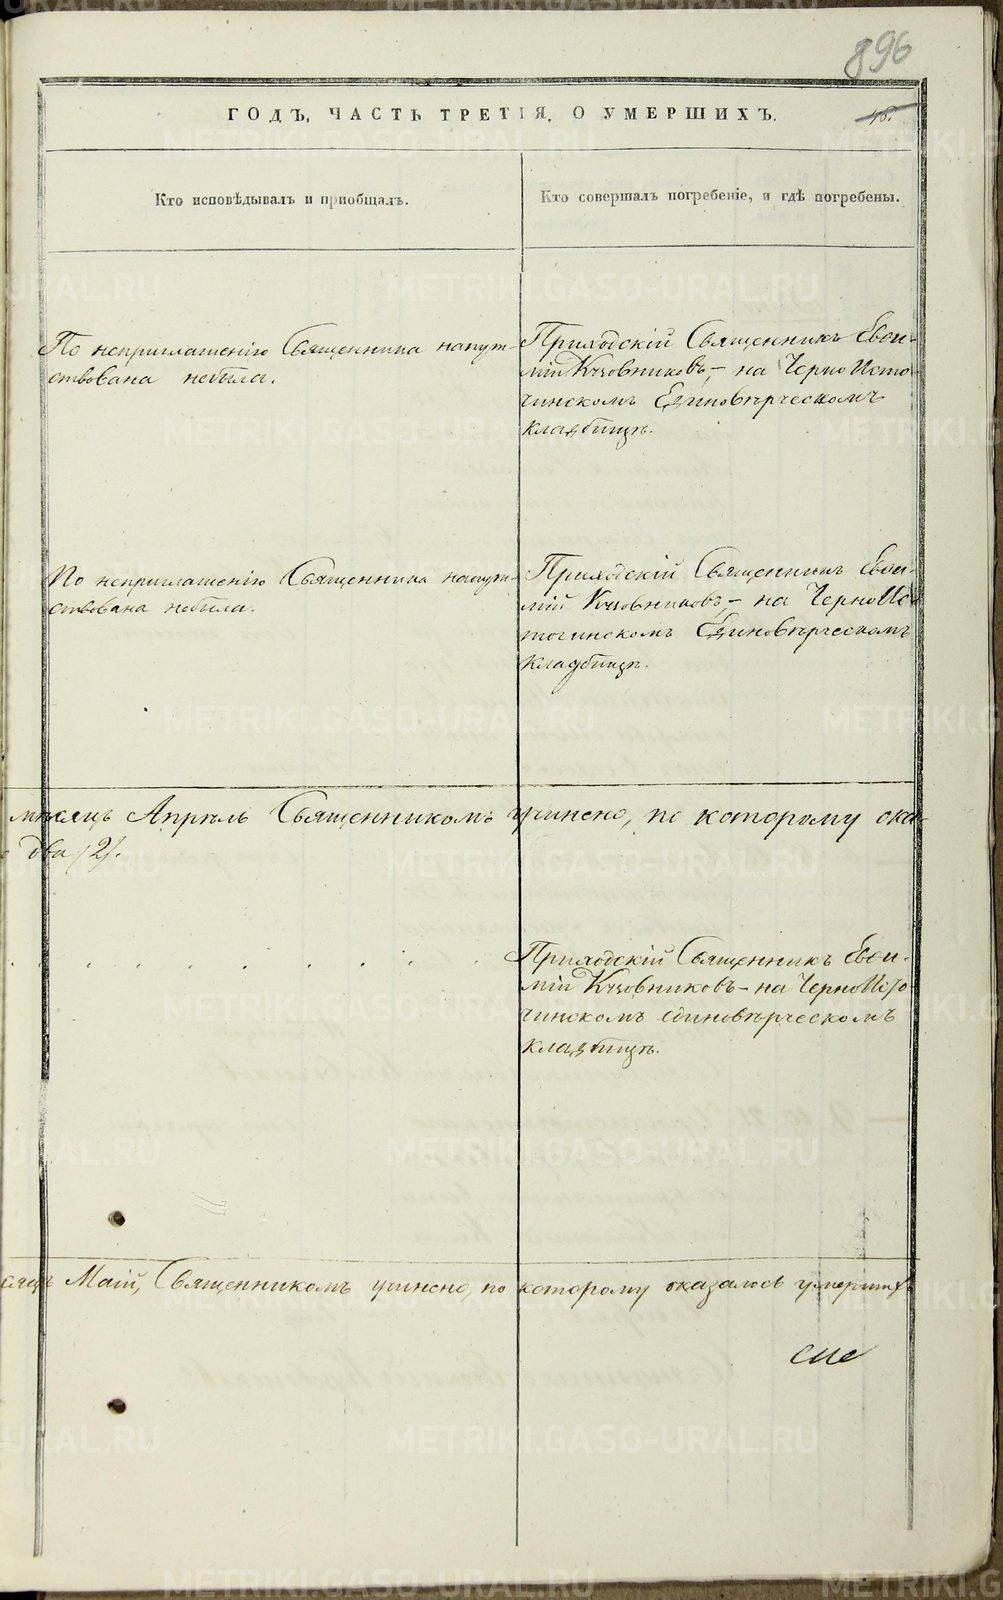 896
ГОДЪ, ЧАСТЬ ТРЕТІЯ, О УМЕРШИХЪ.
Кто исповѣдывалъ и пріобщалъ.
Кто совершалъ погребеніе, и гдѣ погребены.
По неприглашенію Священника напут-
ствована небыла.
Приходскій Священникъ Евѳи-
мій на Черно Исто-
чинскомъ Единовѣрческомъ
кладбищѣ.
По неприглашенію Священника напут-
ствована небыла.
Приходскій Священникъ Евѳи-
мій на ЧерноИс-
точинскомъ Единовѣрческомъ
кладбищѣ.
мѣсяцъ Апрѣль Священникомъ учинено, по которому ока-
два /2/.
Приходскій Священникъ Евѳи-
мій на ЧерноИсто-
чинскомъ единовѣрческомъ
кладбищѣ.
сяцъ Маій, Священникомъ учинено, по которому оказалось умершихъ
METRIKI.GASO-URAL.RU